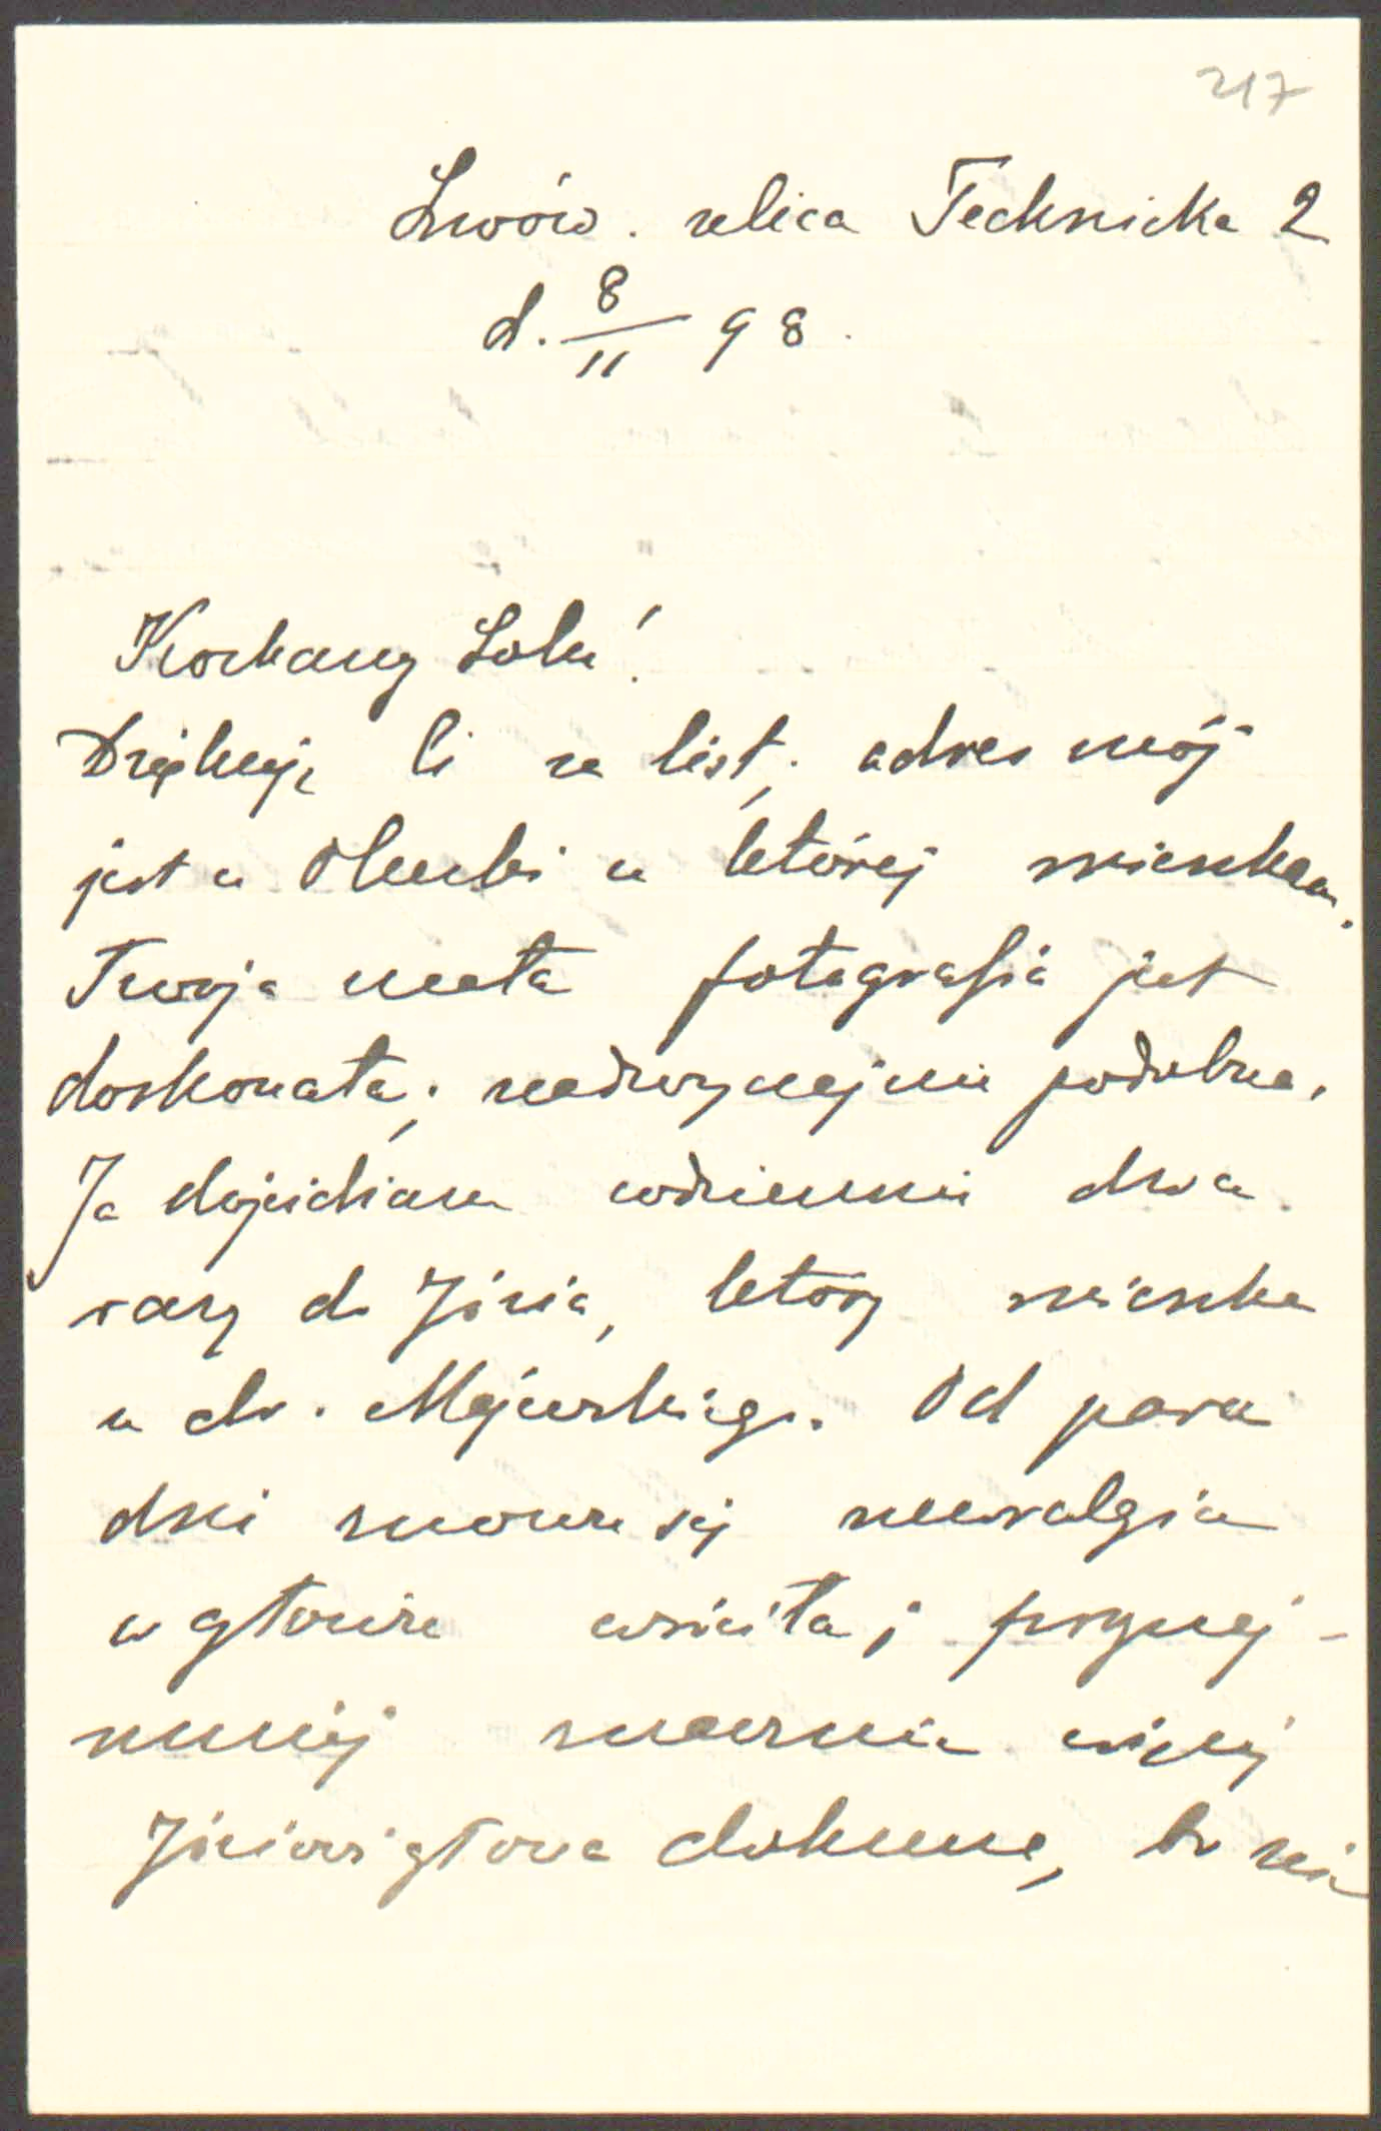 217
Lwów. ulica Technicka 2
d. 8/11 98.
Kochany Lolu!
Dziękuję Ci za list; adres mój
jest u Olenki u której mieszkam.
Twoja mała fotografia jest
doskonała; nadzwyczajnie podobna.
Ja dojeżdżam codziennie dwa
razy do Józia, który mieszka
u dr. Majewskiego. Od paru
dni znowu się neuralgia
w głowie wściekła; przynaj-
mniej znacznie więcej
Józiowi głowa dokucza, bo nie